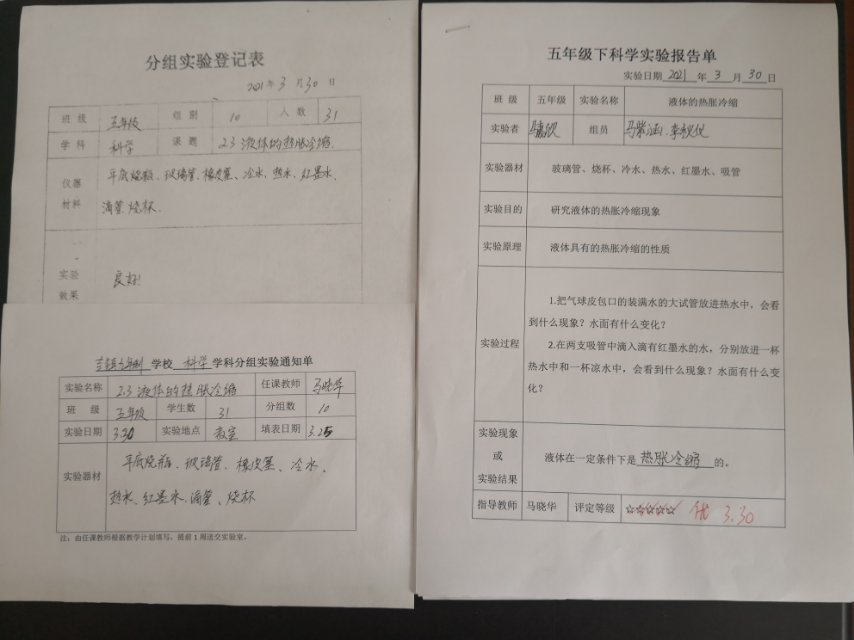 分组实验登记表
2021年3月30日
班级 五年级 组别 10 人数 31
学科 科学 课题 2.3 液体的热胀冷缩
仪器材料 平底烧瓶、玻璃管、橡皮塞、冷水、热水、红墨水、
滴管、烧杯.
实验效果 良好!
学校 科学 学科分组实验通知单
实验名称 2.3 液体的热胀冷缩 任课教师 马晓华
班级 五年级 学生数 31 分组数 10
实验日期 3.30 实验地点 教室 填表日期 3.25
实验器材 平底烧瓶、玻璃管、橡皮塞、冷水、
热水、红墨水、滴管、烧杯
注:由任课教师根据教学计划填写,提前1周送交实验室。
五年级下科学实验报告单
实验日期 2021 年 3 月 30 日
班级 五年级 实验名称 液体的热胀冷缩
实验者 组员 马紫涵、李
实验器材 玻璃管、烧杯、冷水、热水、红墨水、吸管
实验目的 研究液体的热胀冷缩现象
实验原理 液体具有的热胀冷缩的性质
实验过程
1.把气球皮包口的装满水的大试管放进热水中,会看
到什么现象?水面有什么变化?
2.在两支吸管中滴入滴有红墨水的水,分别放进一杯
热水中和一杯凉水中,会看到什么现象?水面有什么变
化?
实验现象
或
实验结果
液体在一定条件下是 热胀冷缩 的。
指导教师 马晓华 评定等级 ☆☆☆☆☆ 优 3.30